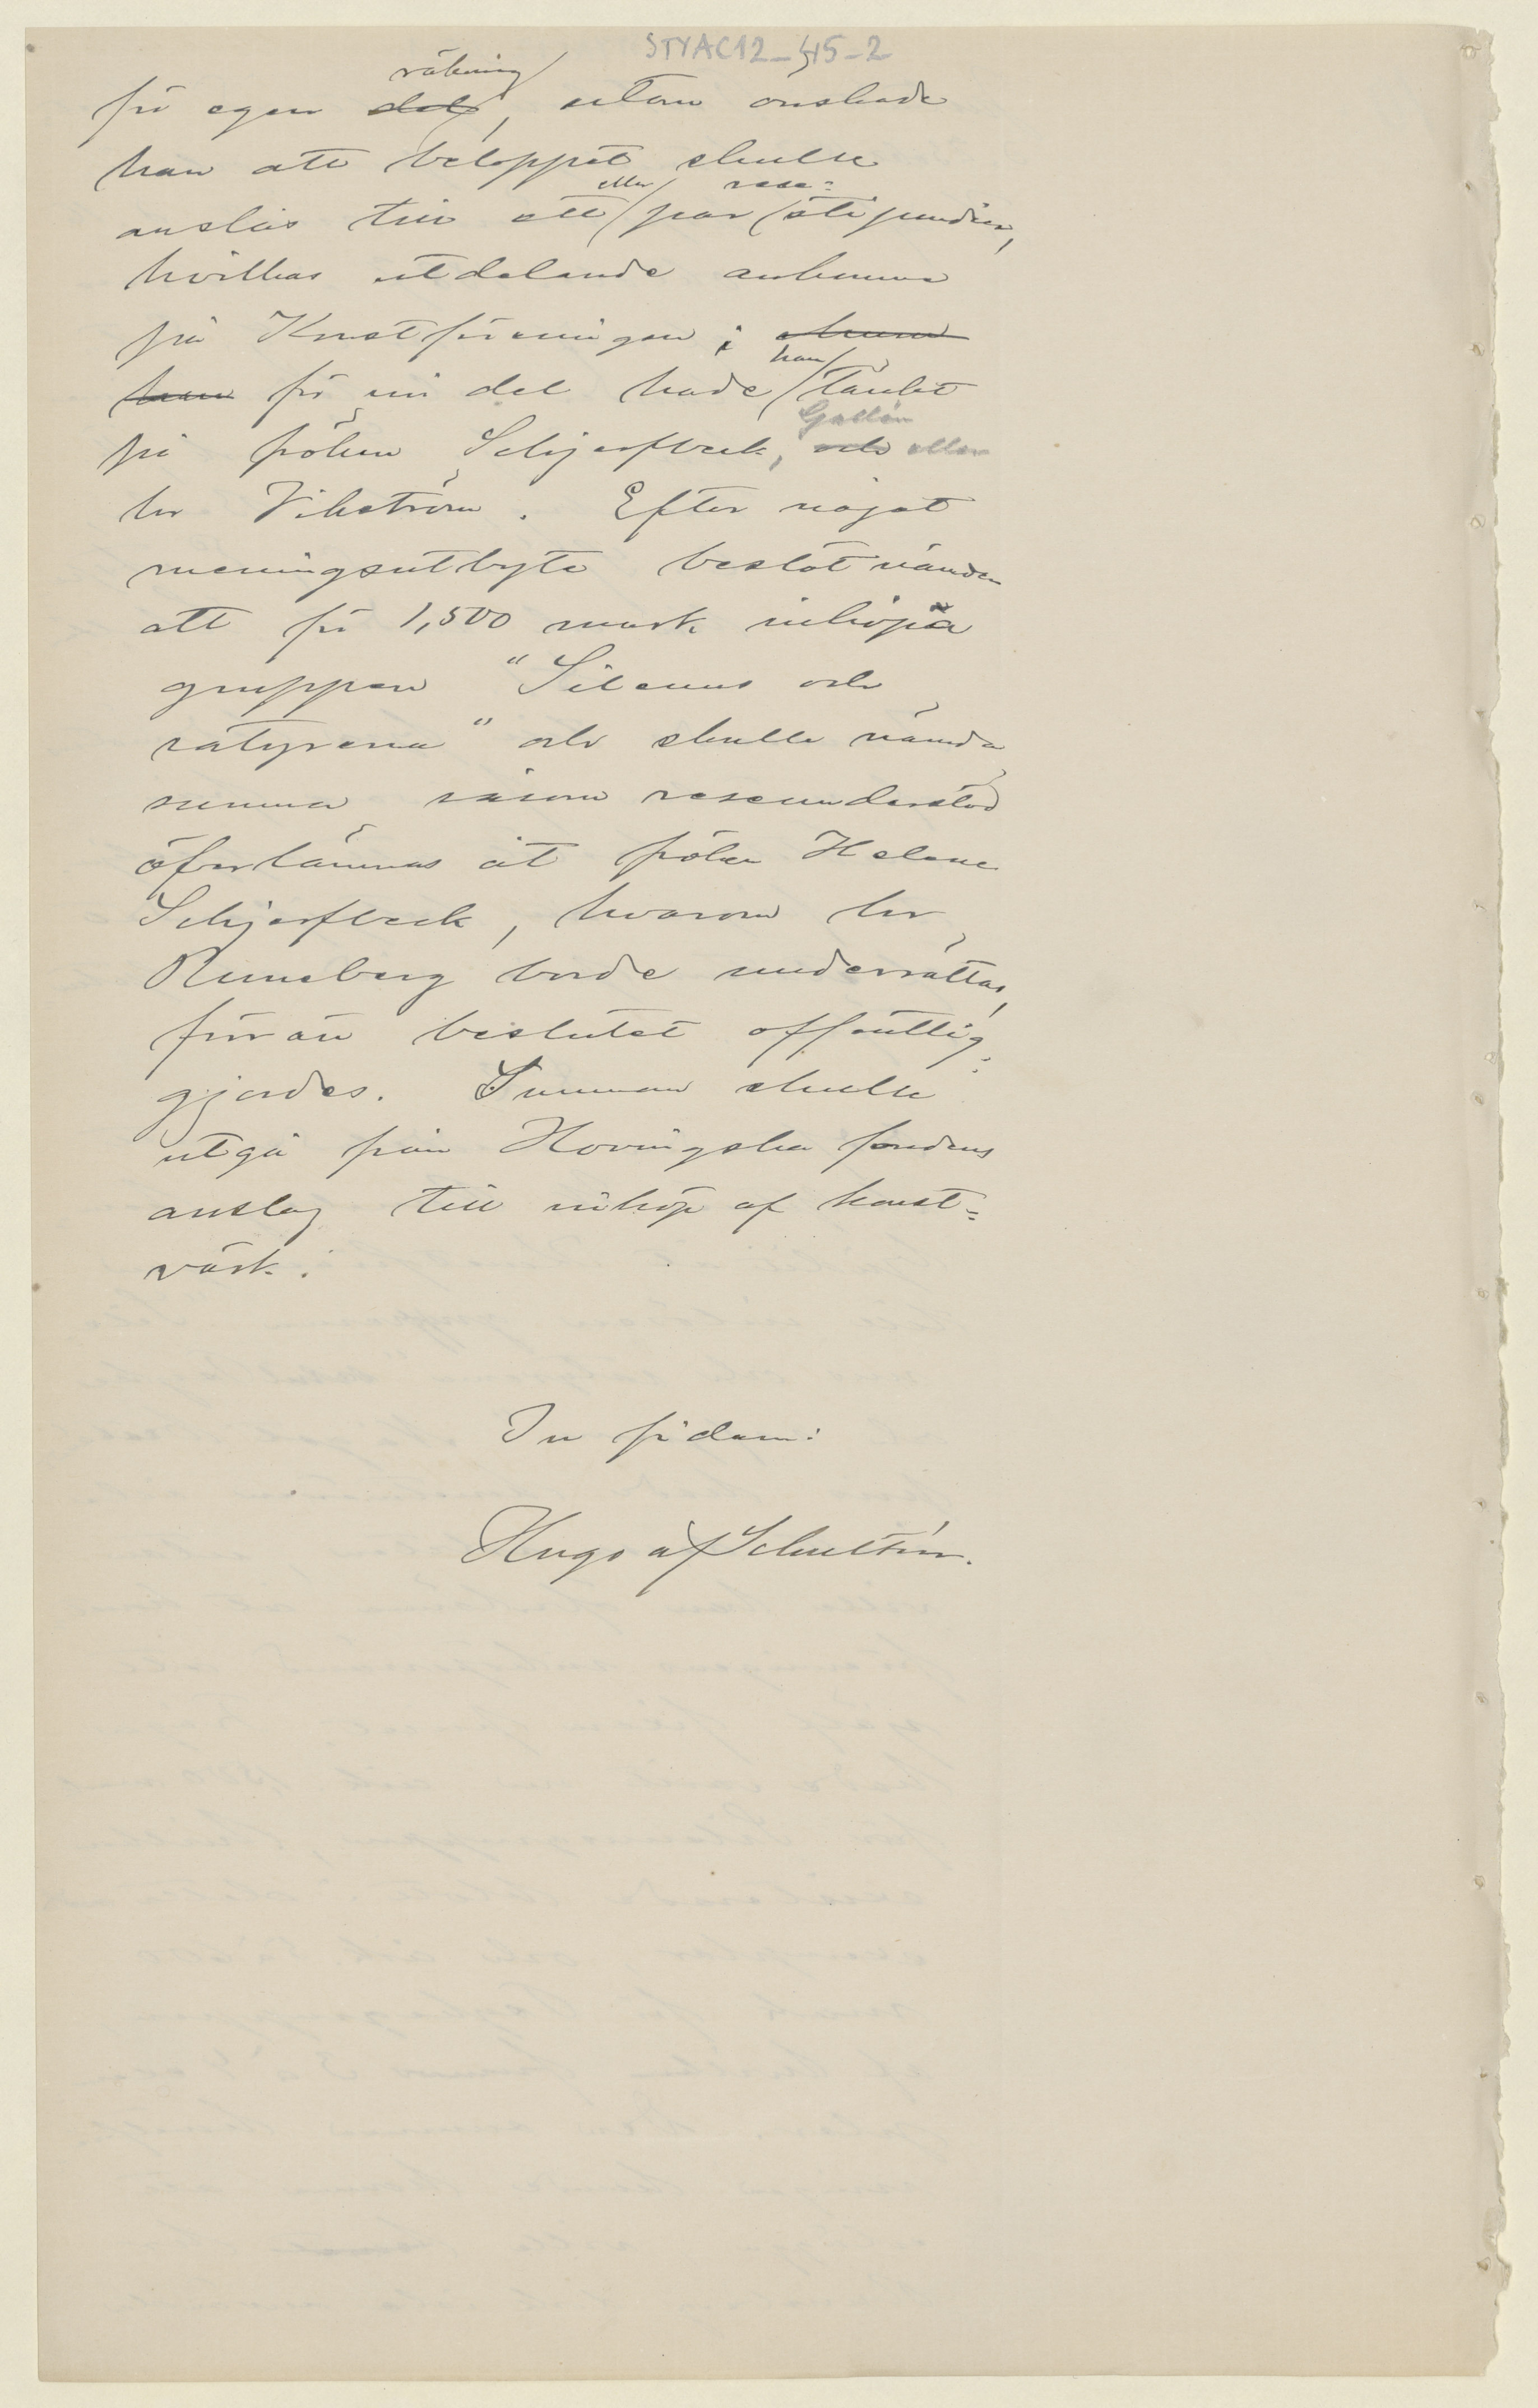 STYAC12_45-2
räkning
för egen del, utan önskade
han att beloppet skulle
eller rese-
anslås till ett par stipendier,
hvilkas utdelande ankomme
på Konstföreningen;
han
han för sin del hade tänkt
Gallén
på fröken Schjerfbeck, och eller
hr Vikström. Efter något
meningsutbyte beslöt nämnden
att för 1,500 mark inköpa
gruppen "Silenus och
satyrerna" och skulle nämda
summa såsom reseunderstöd
öfverlämnas åt fröken Helene
Schjerfbeck, hvarom hr
Runeberg borde underrättas,
förrän beslutet offentlig-
gjordes. Summan skulle
utgå från Hovingska fondens
anslag till inköp af konst-
värk.
In fidem:
Hugo af Schultén.